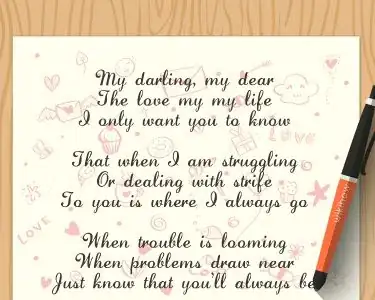 My darling, my dear
The love my my life
I only want you to know
That when I am struggling
Or dealing with strife
To you is where I always go
When trouble is looming
When problems draw near
Just know that you'll always be
LOVE
LOVE